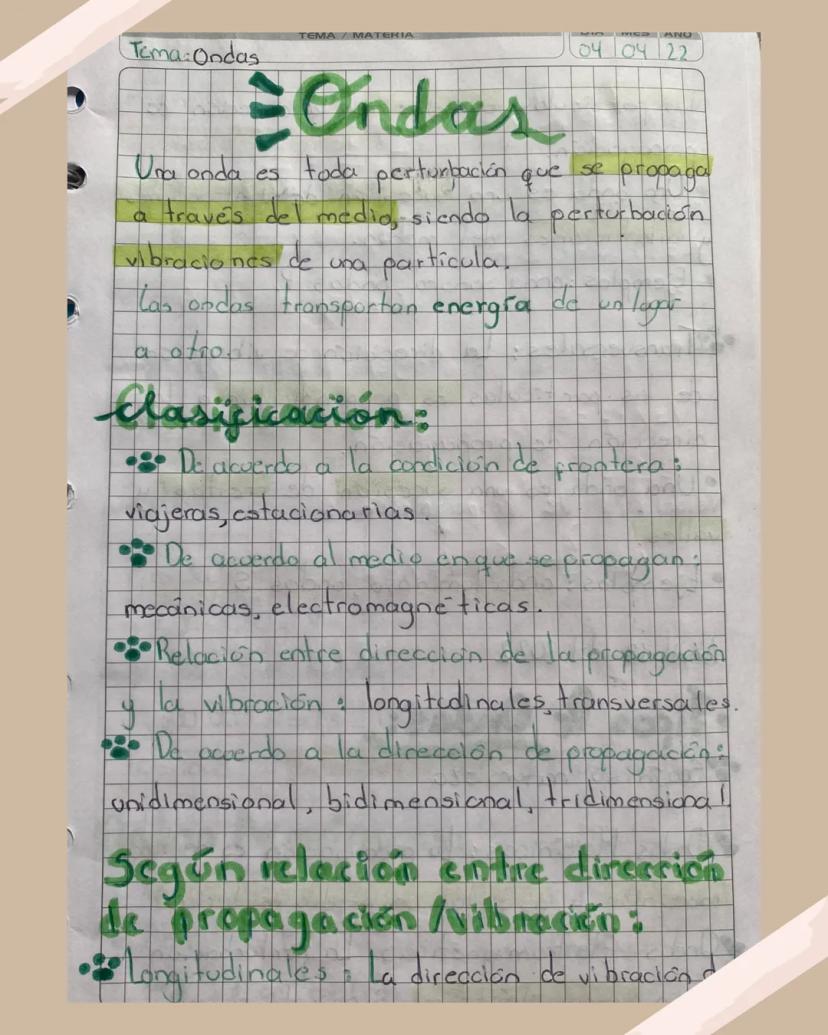 TEMA / MATERIA
DIA MES AÑO
Tema: Ondas
04 04 22
Ondas
Una onda es toda perturbación que se propaga
a través del medio, siendo la perturbación
vibraciones de una partícula.
Las ondas transportan energía de un lugar
a otro.
Clasificación:
De acuerdo a la condición de frontera:
viajeras, estacionarias.
De acuerdo al medio en que se propagan:
mecánicas, electromagnéticas.
Relación entre dirección de la propagación
y la vibración: longitudinales, transversales.
De acuerdo a la dirección de propagación:
unidimensional, bidimensional, tridimensional.
Según relación entre dirección
de propagación/vibración:
Longitudinales: La dirección de vibración